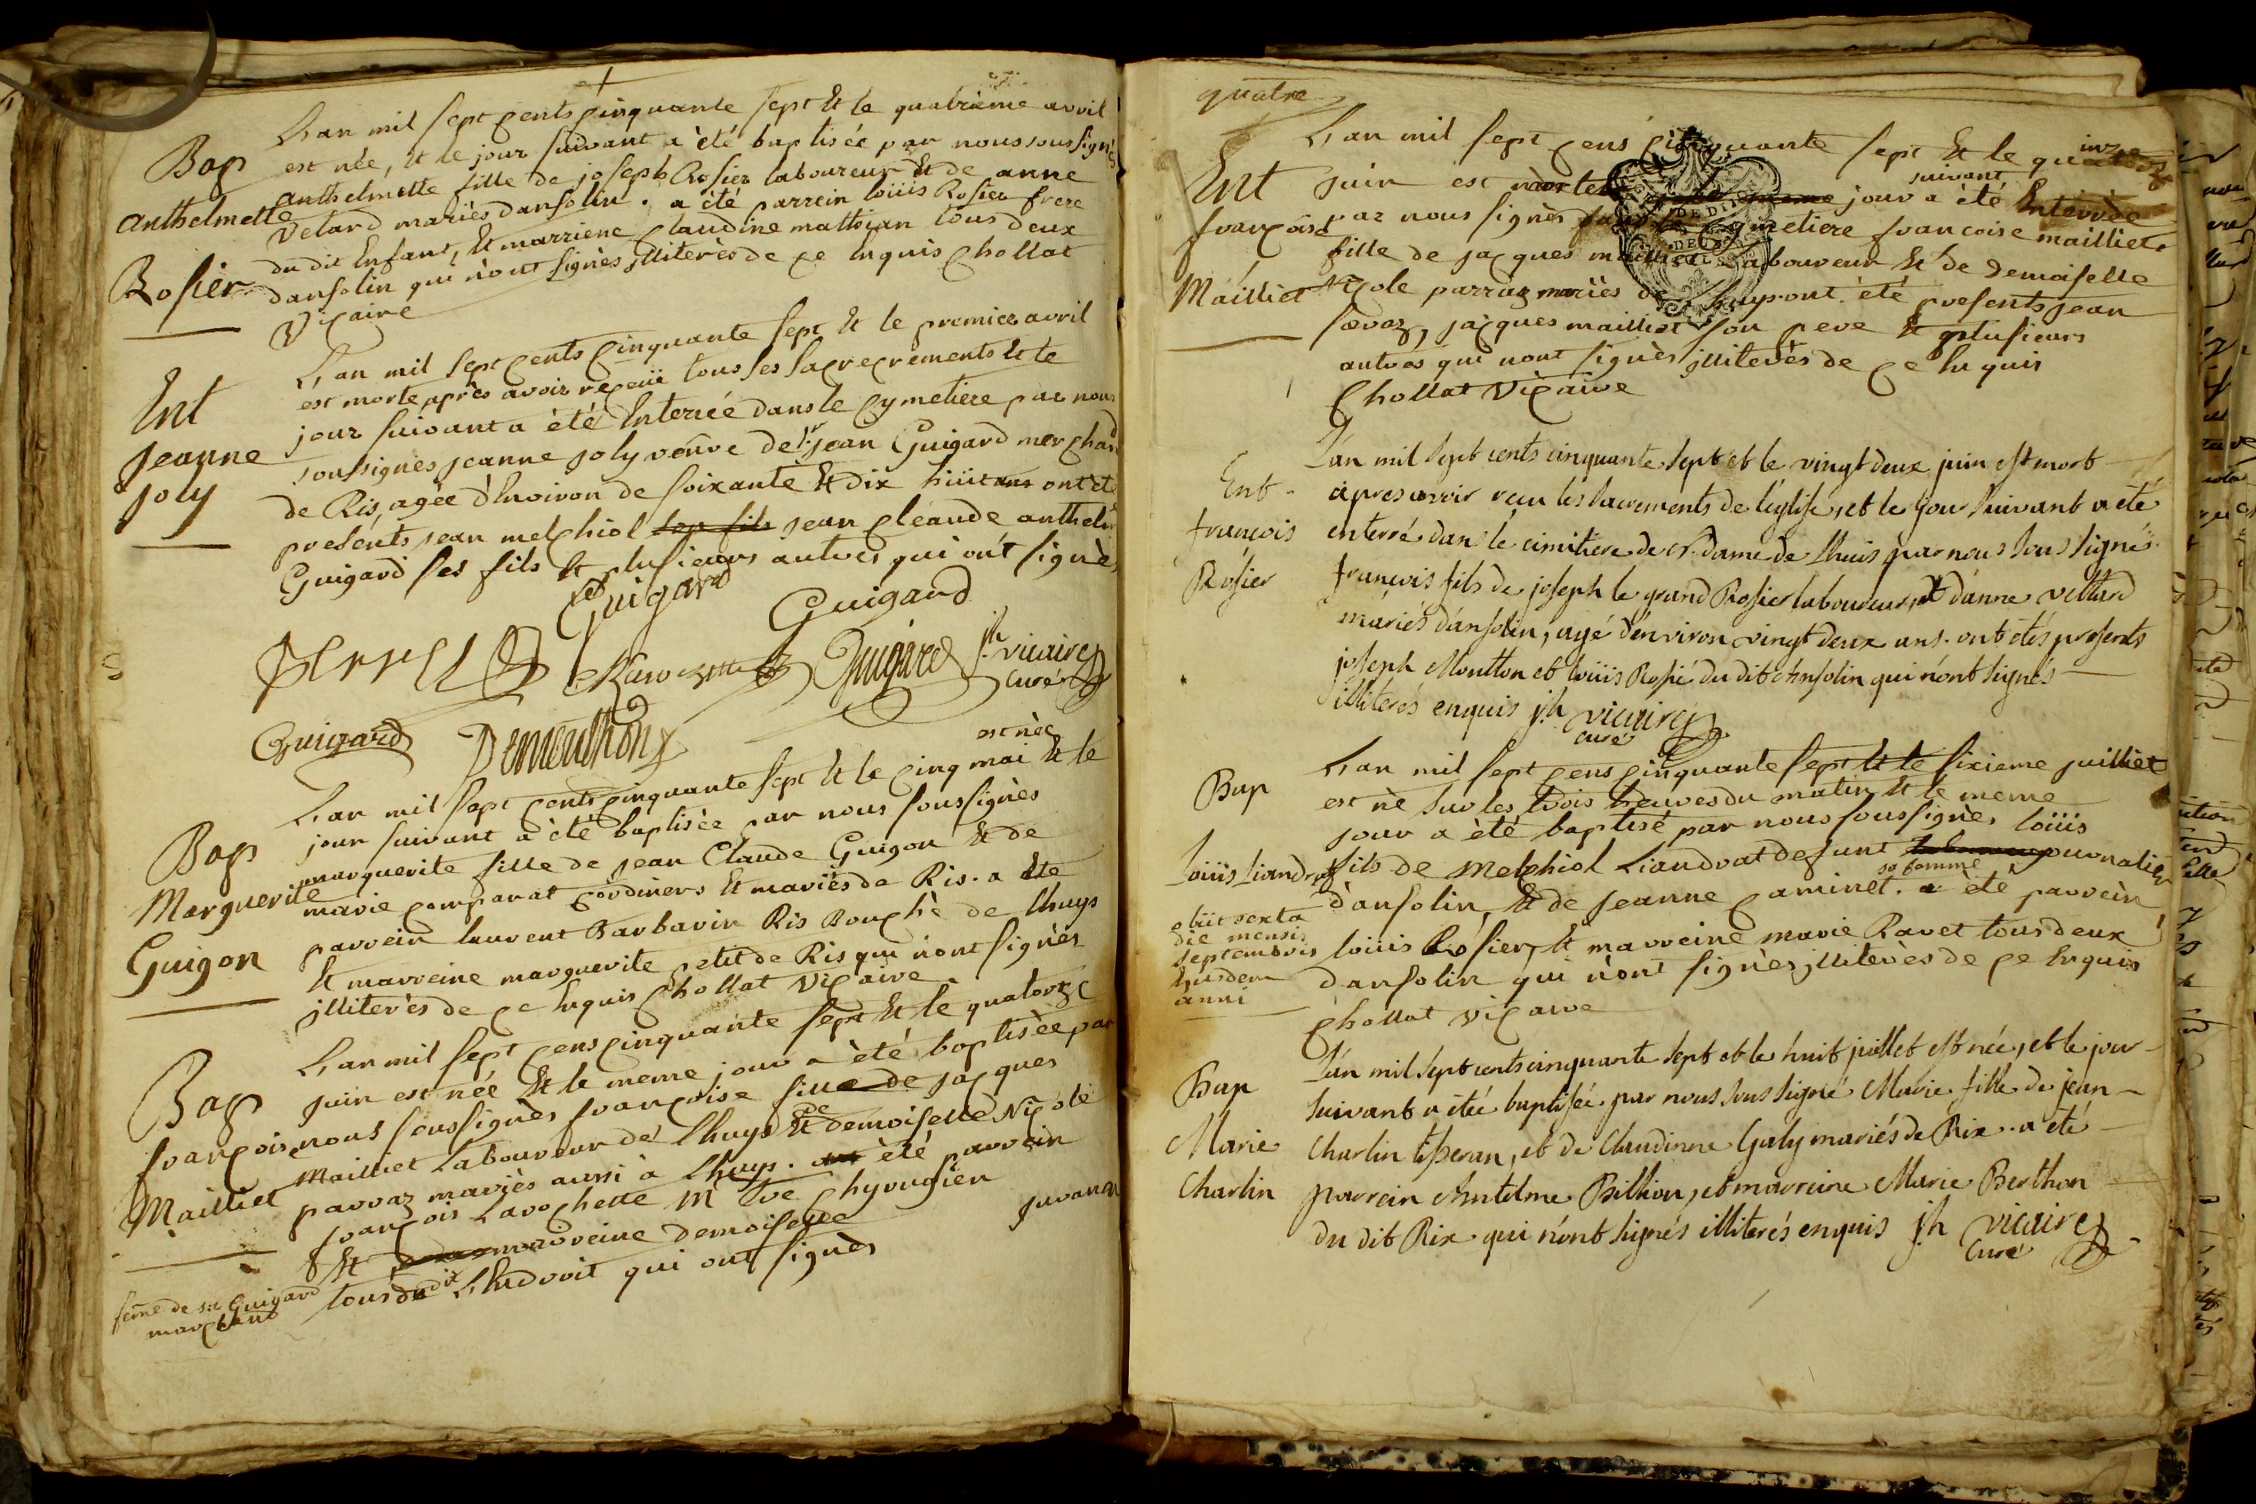 L'an mil sept cents cinquante sept et le quatrième avril
Bap
est née, et le jour suivant a été baptisée par nous soussignès
anthelmette
anthelmette fille de joseph Rosier laboureur et de anne
Vetard mariès d'ansolin. a été parrein loüis Rosier frere
Rosier
du dit Enfant, et marriene claudine mathian tous deux
d'ansolin qui n'ont signès illiterès de ce Enquis Chollat
Vicaire
L'an mil sept cents cinquante sept et le premier avril
Ent
est morte après avoir reçeüe tous ses sacrecrements et le
jour suivant a été Enterrée dans le cymetiere par nous
jeanne
soussignès jeanne joly veuve de Sr jean Guigard marchand
joly
de Ris, agée d'Environ de soixante et dix hüit ans ont étè
présents jean melchiol son fils jean cleaude anthelm
Guigard ses fils et plusieurs autres qui ont signès
Guigard
Guigard
Guigard jh vicaire
curé
Guigard Demeulhon
est née
L'an mil sept cents cinquante sept et le cinq mai et le
Bap
jour suivant a été baptisèe par nous soussignès
Marguerite
marguerite fille de jean Claude Guigon et de
marie comparat cordiners et mariés de Ris. a ète
Guigon
parrein laurent Barbarin Ris Bouchè de lhuys
et marreine marguerite petit de Ris qui n'ont signès
illiterès de ce Enquis Chollat Vicaire
L'an mil sept cens cinquante sept et le quatorze
Bap
juin est née et le meme jour a été baptisèe par
françoise
nous soussignès françoise fille de jacques
Mailliet
Mailliet Laboureur de Lhuys et de demoiselle Nicole
parraz mariès aussi à Lhuys. a été parrein
françois Lavochette Me chyrugien
et marreine demoiselle
juvanon
feme de sr Guigard
marchand
tous du dit L'Endroit qui ont signès
quatre
L'an mil sept cens cinquante sept et le quinze
Ent
juin est morte et le meme jour suivant a été Enterrèe
françoise
par nous signès cymetiere francoise mailliet
fille de jacques mailliet Laboureur et de demoiselle
Mailliet
Nicole parraz mariès de Lhuys ont été presents jean
savaz, jacques mailliet son pere et plusieurs
autres qui n'ont signès illiterès de ce Enquis
Chollat Vicaire
L'an mil sept cents cinquante sept et le vingt deux juin est mort
Ent
après avoir recu les sacrements de l'église, et le jour suivant a été
françois
enterré dans le cimitiere de N. dame de Lhuis par nous sous signés
Rosier
françois fils de joseph le grand Rosier laboureur, et d'anne Vettard
mariés d'ansolin, agé d'environ vingt deux ans. ont étés presents
joseph Montton et loüis Rosié du dit Ansolin qui n'ont signés
illiterés enquis jh vicaire
curé
L'an mil sept cens cinquante sept et le sixieme juilliet
Bap
est nè sur les trois heures du matin et le meme
jour a été baptisé par nous soussignès loüis
Loüis Liandrat
fils de Melchiol Liandrat defunt journalier
sa femme
d'ansolin, et de jeanne caminet. a été parrein
obiit sexta
die mensis
septembris
Ejusdem
anni
loüis Rosier, et marreine marie Ravet tous deux
d'ansolin qui n'ont signès, illiterès de ce Enquis
Chollat vicaire
L'an mil sept cents cinquante sept et le huit juillet est née, et le jour
Bap
suivant a étée baptisée par nous sous signé Marie fille de jean
Marie
Charlin, et de Claudinne Galy mariés de Rix. a été
Charlin
parrein Antelme Billion, et marreine Marie Berthon
du dit Rix qui n'ont signés illiterés enquis jh vicaire
curé